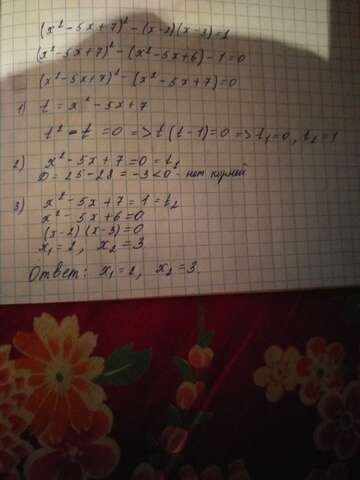 (x² - 5x + 7)² - (x - 2)(x - 3) = 1
(x² - 5x + 7)² - (x² - 5x + 6) - 1 = 0
(x² - 5x + 7)² - (x² - 5x + 7) = 0
1) t = x² - 5x + 7
t² - t = 0 => t(t - 1) = 0 => t₁ = 0, t₂ = 1
2) x² - 5x + 7 = 0 = t₁
D = 25 - 28 = -3 < 0 - нет корней
3) x² - 5x + 7 = 1 = t₂
x² - 5x + 6 = 0
(x - 2)(x - 3) = 0
x₁ = 2, x₂ = 3
Ответ: x₁ = 2, x₂ = 3.